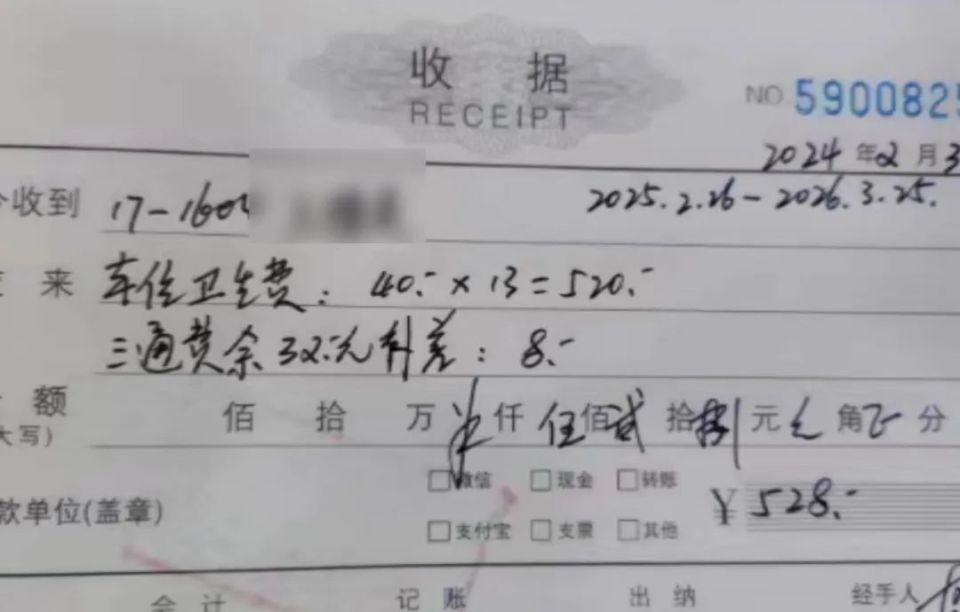 收 据
RECEIPT
NO. 5900825
2024 年 2 月 3
收到 17-160
2025.2.26-2026.3.25.
来 车位卫生费：40.-×13=520.-
三通费余32.元补差：8.-
额 佰 拾 万 仟 伍 佰 贰 拾 捌 元 角 分
大写)
微信 现金 转账
款单位(盖章) ¥ 528.-
支付宝 支票 其他
会 计 记 账 出 纳 经手人